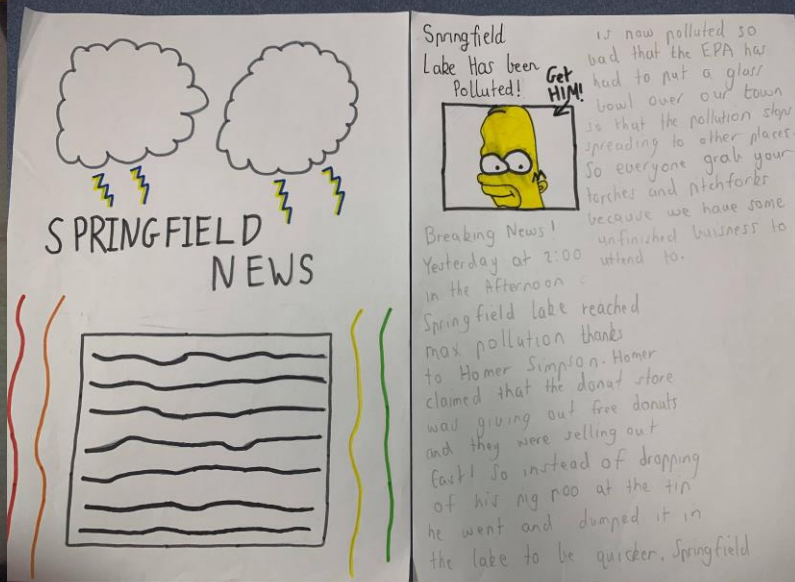 SPRINGFIELD
NEWS
Springfield
Lake Has been
Polluted!
Get
HIM!
Breaking News!
Yesterday at 2:00
in the Afternoon
Springfield lake reached
max pollution thanks
to Homer Simpson. Homer
claimed that the donut store
was giving out free donuts
and they were selling out
fast! So instead of dropping
of his pig poo at the tip
he went and dumped it in
the lake to be quicker. Springfield
is now polluted so
bad that the EPA has
had to put a glass
bowl over our town
so that the pollution stops
spreading to other places.
So everyone grab your
torches and pitchforks
because we have some
unfinished buisness to
attend to.